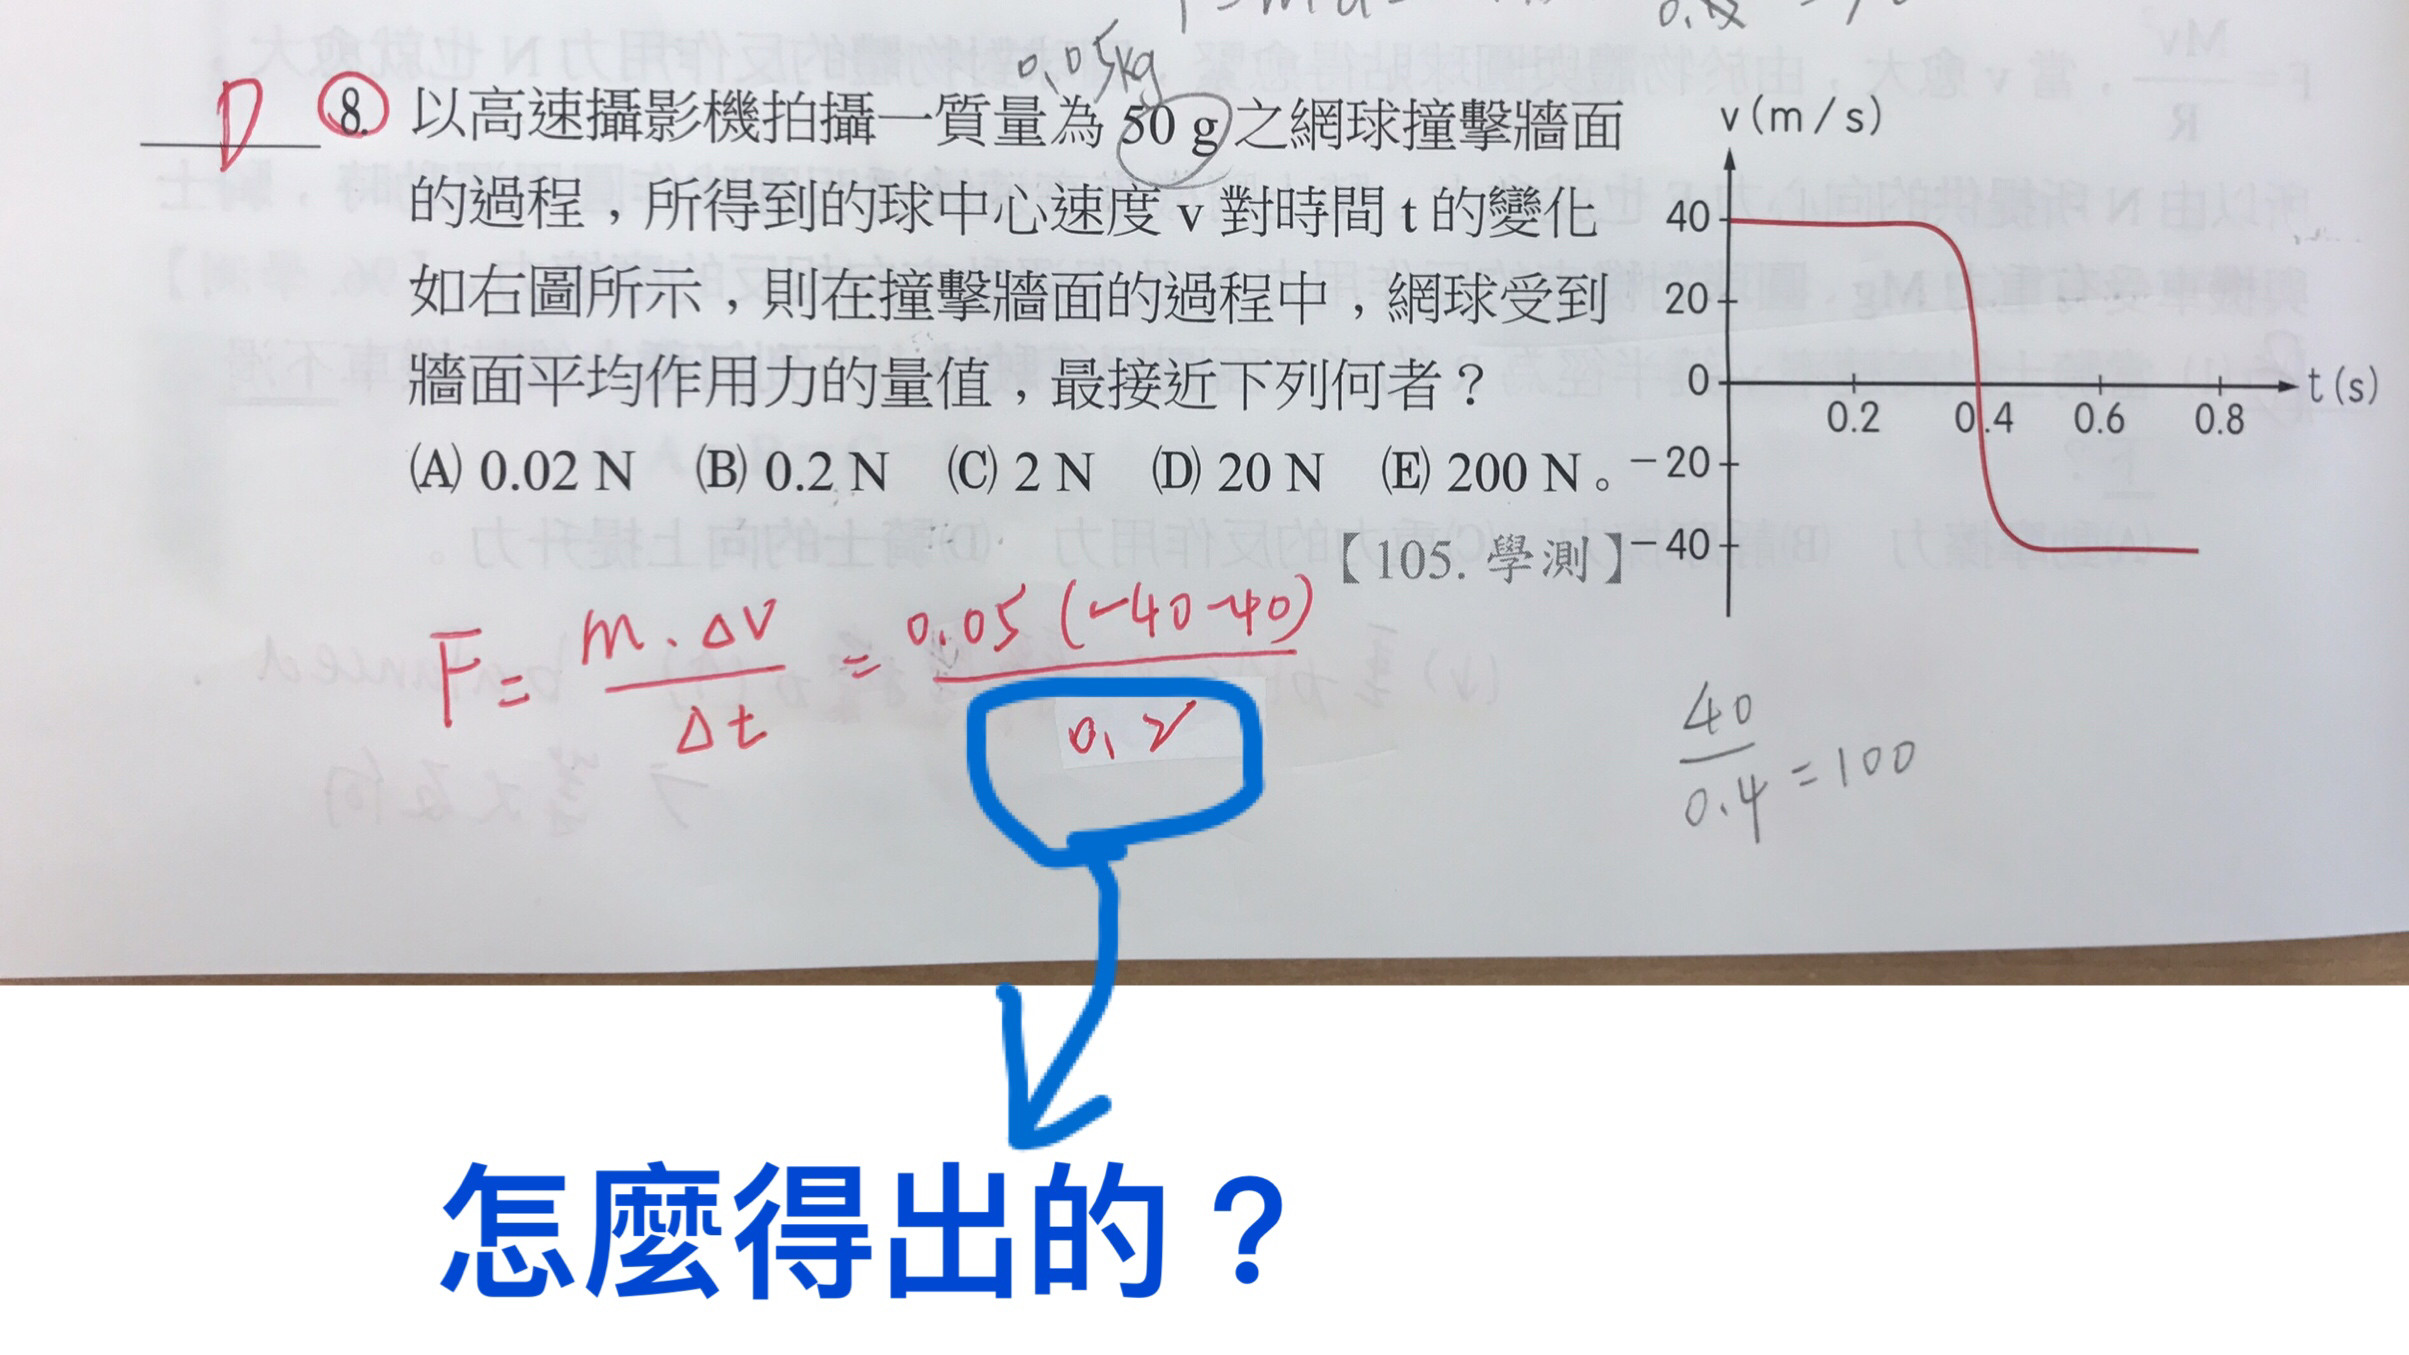 0.05kg
D 8. 以高速攝影機拍攝一質量為 50 g 之網球撞擊牆面
的過程，所得到的球中心速度 v 對時間 t 的變化
如右圖所示，則在撞擊牆面的過程中，網球受到
牆面平均作用力的量值，最接近下列何者？
(A) 0.02 N (B) 0.2 N (C) 2 N (D) 20 N (E) 200 N。
【105. 學測】
v(m/s)
40
20
0
t(s)
0.2 0.4 0.6 0.8
-20
-40
F = m·Δv / Δt = 0.05 (-40-40) / 0.2
40 / 0.4 = 100
怎麼得出的？